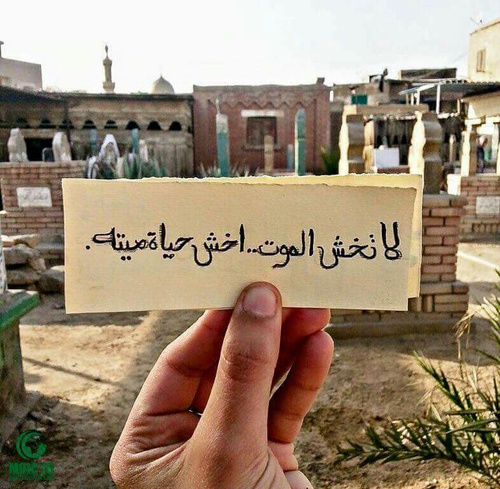 لا تخش الموت.. اخش حياة ميته.